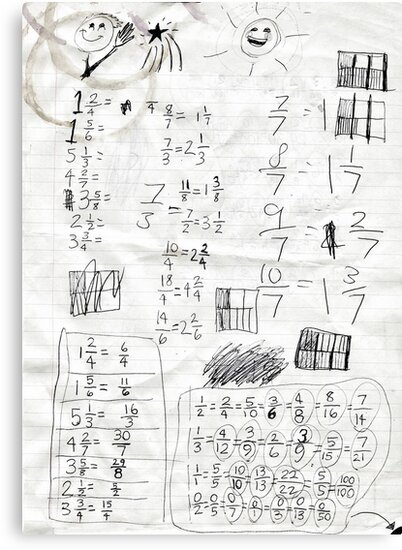 1 2/4 =
1 5/6 =
5 1/3 =
4 2/7 =
3 5/8 =
2 1/2 =
3 3/4 =
4
8/7 = 1 1/7
7/3 = 2 1/3
11/8 = 1 3/8
7/3
= 7/2 = 3 1/2
10/4 = 2 2/4
18/4 = 4 2/4
14/6 = 2 2/6
7/7 = 1
8/7 = 1 1/7
9/7 = 1 2/7
10/7 = 1 3/7
1 2/4 = 6/4
1 5/6 = 11/6
5 1/3 = 16/3
4 2/7 = 30/7
3 5/8 = 29/8
2 1/2 = 5/2
3 3/4 = 15/4
1/2 = 2/4 = 5/10 = 3/6 = 4/8 = 8/16 = 7/14
1/3 = 4/12 = 3/9 = 2/6 = 3/9 = 5/15 = 7/21
1/1 = 5/5 = 10/10 = 13/13 = 22/22 = 5/5 = 100/100
0/2 = 0/5 = 0/7 = 0/1 = 0/3 = 0/13 = 0/50